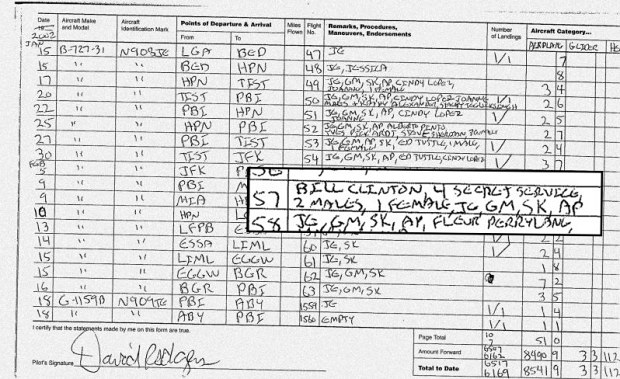 Date
Aircraft Make and Model
Aircraft Identification Mark
Points of Departure & Arrival
Miles Flown
Flight No.
Remarks, Procedures, Maneuvers, Endorsements
Number of Landings
Aircraft Category...
From
To
AIRPLANE
GLIDER
2002
JAN
15 B-727-31 N908JE LGA BED 47 JE 1/1 7
15 " " BED HPN 48 JE, JESSICA 8
17 " " HPN TIST 49 JE, GM, SK, AP, CINDY LOPEZ, 1 FEMALE 3 4
20 " " TIST PBI 50 JE, GM, SK, AP, CINDY LOPEZ 2 6
22 " " PBI HPN 51 JE, GM, SK, AP, CINDY LOPEZ 2 5
25 " " HPN PBI 52 JE, GM, SK, AP, ALBERTO PINTO 2 7
27 " " PBI TIST 53 JE, GM, AP, SK, ED TUTTLE, 1 MALE, 1 FEMALE 2 4
30 " " TIST JFK 54 JE, GM, SK, AP, ED TUTTLE, CINDY LOPEZ 1/ 3 7
FEB
5 " " JFK P
9 " " PBI M
57 BILL CLINTON, 4 SECRET SERVICE,
2 MALES, 1 FEMALE, JE, GM, SK, AP
9 " " MIA H
10 " " HPN
58 JE, GM, SK, AP, FLEUR PERRY LANG,
13 " " LFPB
14 " " ESSA LIML 60 JE, SK 2 2
15 " " LIML EGGW 61 JE, SK 2 4
15 " " EGGW BGR 62 JE, GM, SK 7 2
16 " " BGR PBI 63 JE, GM, SK 3 5
18 G-1159B N909JE PBI ABY 1559 JE 1/1 1 4
18 " " ABY PBI 1560 EMPTY 1/1 1 1
I certify that the statements made by me on this form are true.
Pilot's Signature David Rodgers
Page Total 10 51 0
Amount Forward 8490 9 3 3 112
Total to Date 6517 6169 8541 9 3 3 112